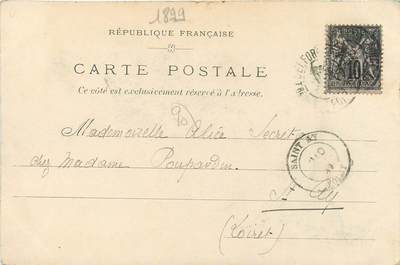 1899
RÉPUBLIQUE FRANÇAISE
CARTE POSTALE
Ce côté est exclusivement réservé à l'adresse.
90
10
Mademoiselle Alice Secret
chez Madame Poupardin
SAINT AY
St Ay
(Loiret)